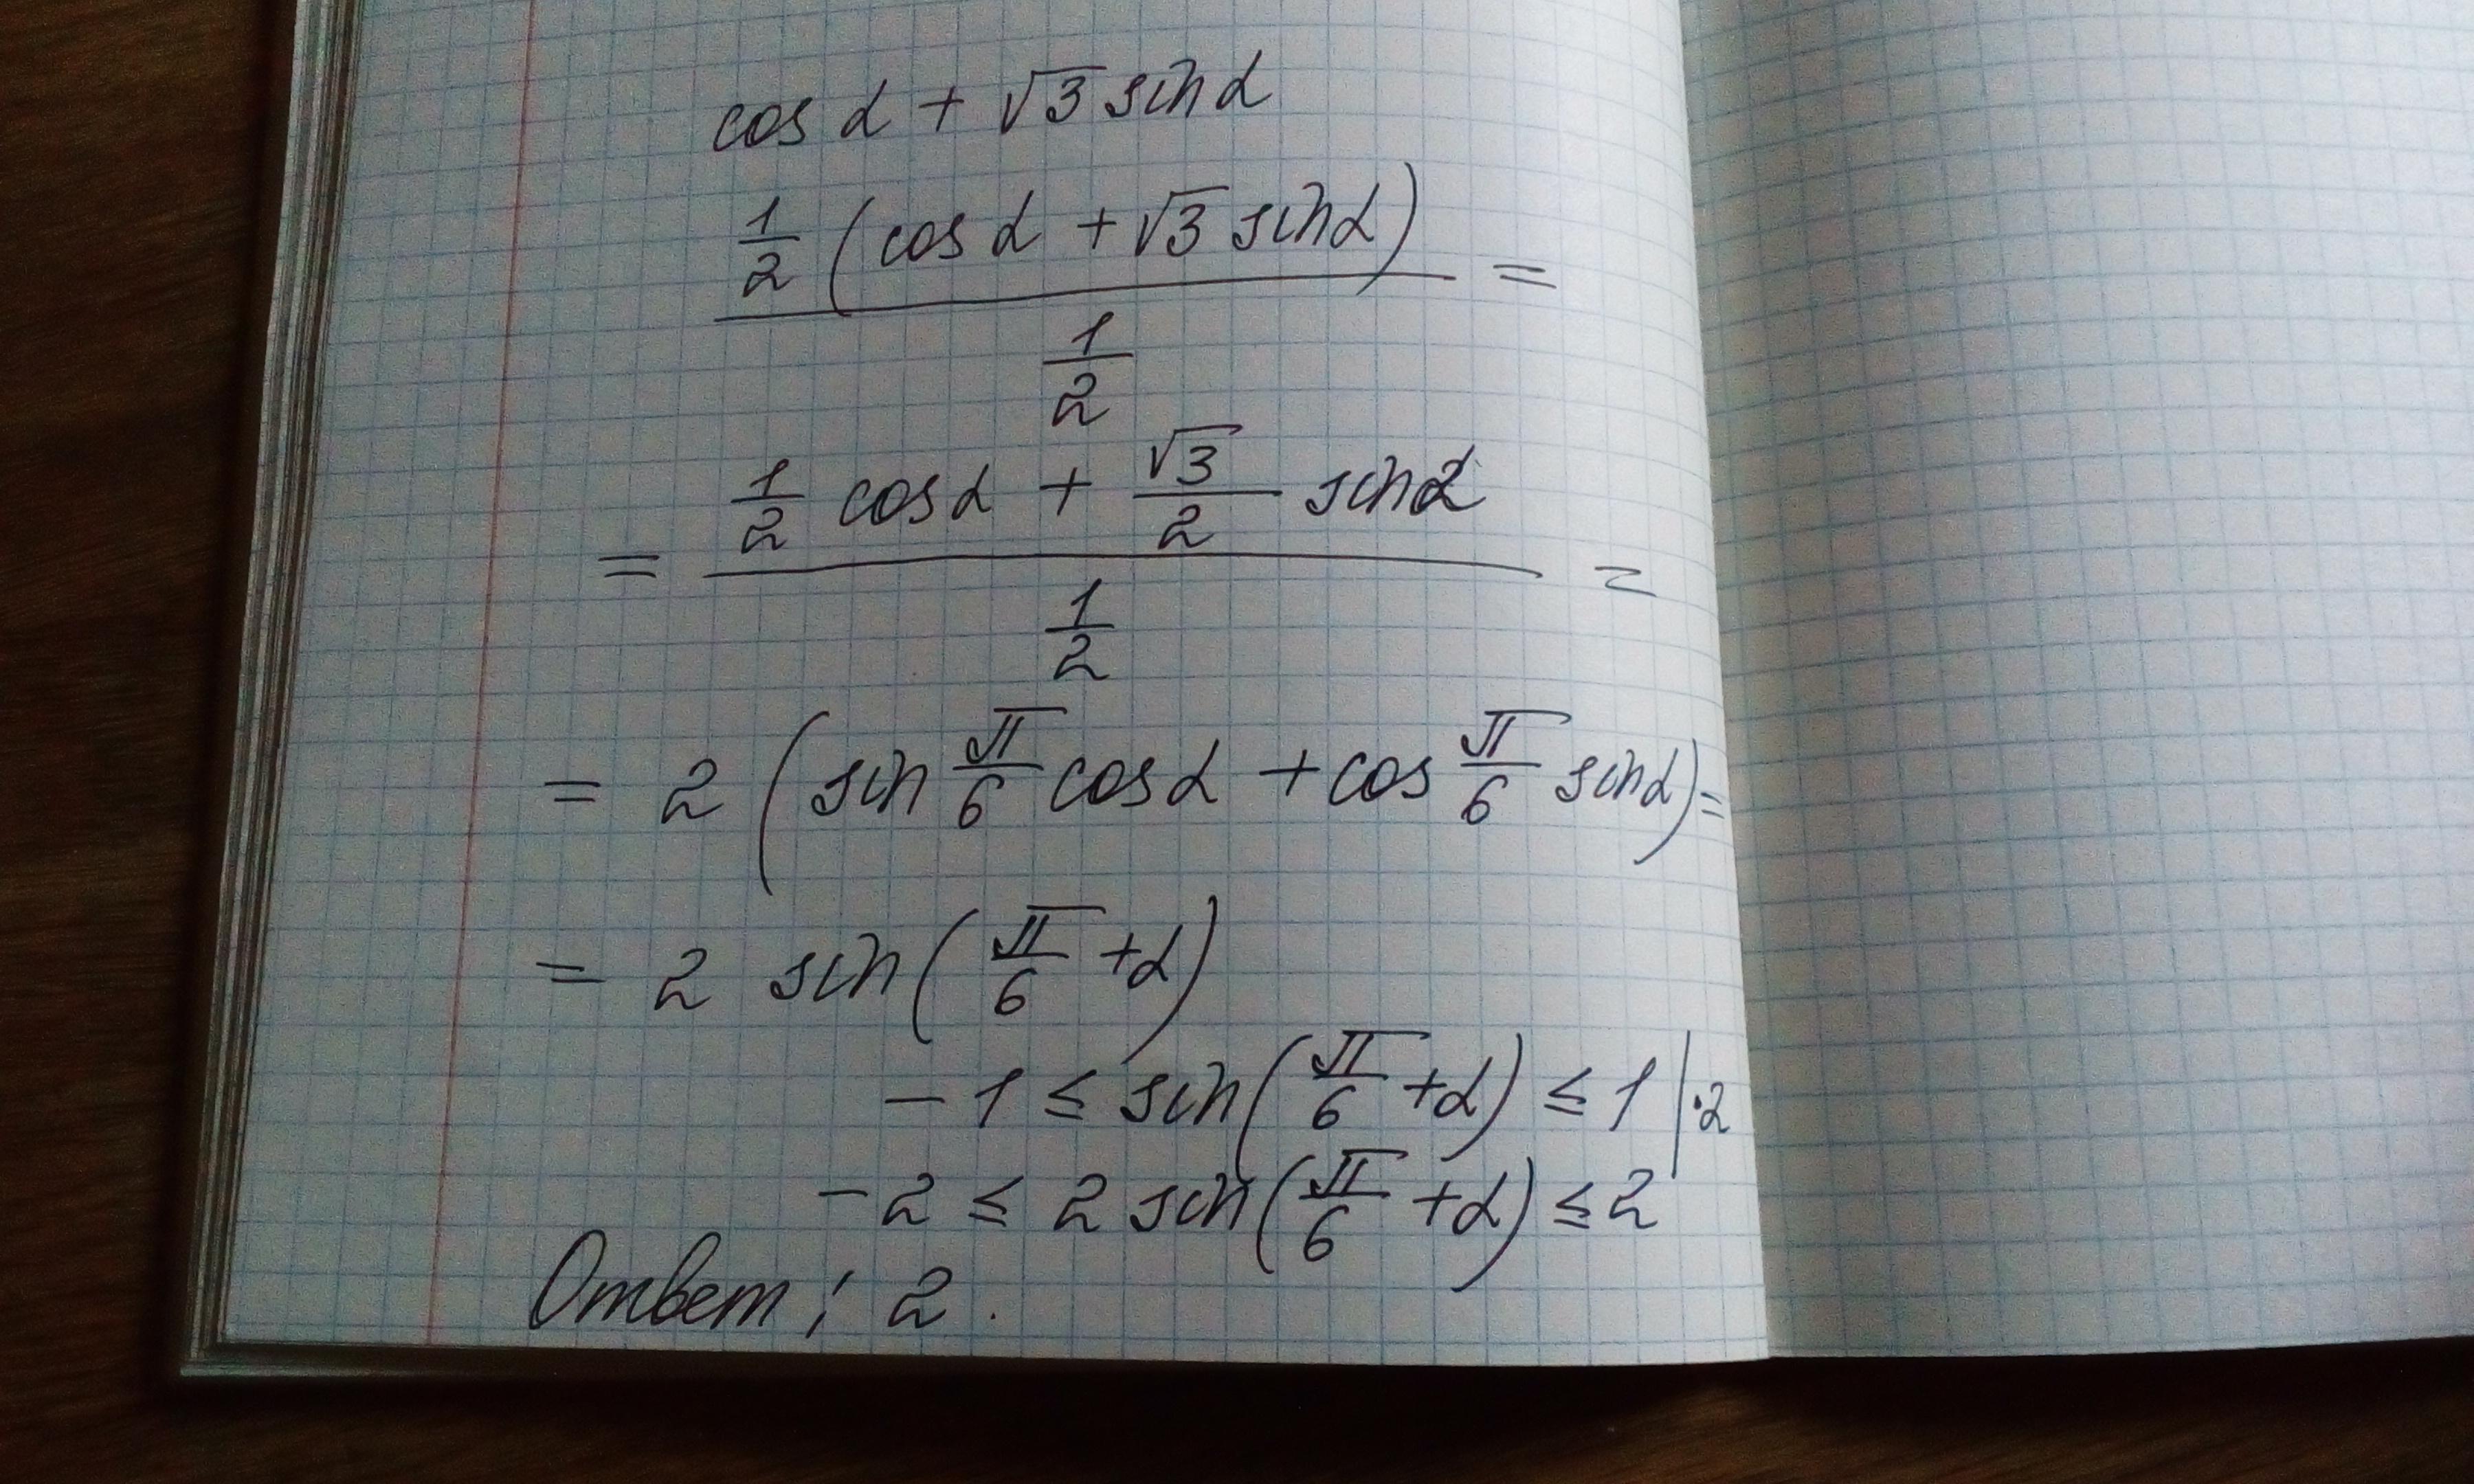 cos α + √3 sin α
1/2 (cos α + √3 sin α) / 1/2 =
= 1/2 cos α + √3/2 sin α / 1/2 =
= 2 (sin π/6 cos α + cos π/6 sin α) =
= 2 sin (π/6 + α)
-1 ≤ sin (π/6 + α) ≤ 1 | · 2
-2 ≤ 2 sin (π/6 + α) ≤ 2
Ответ: 2.